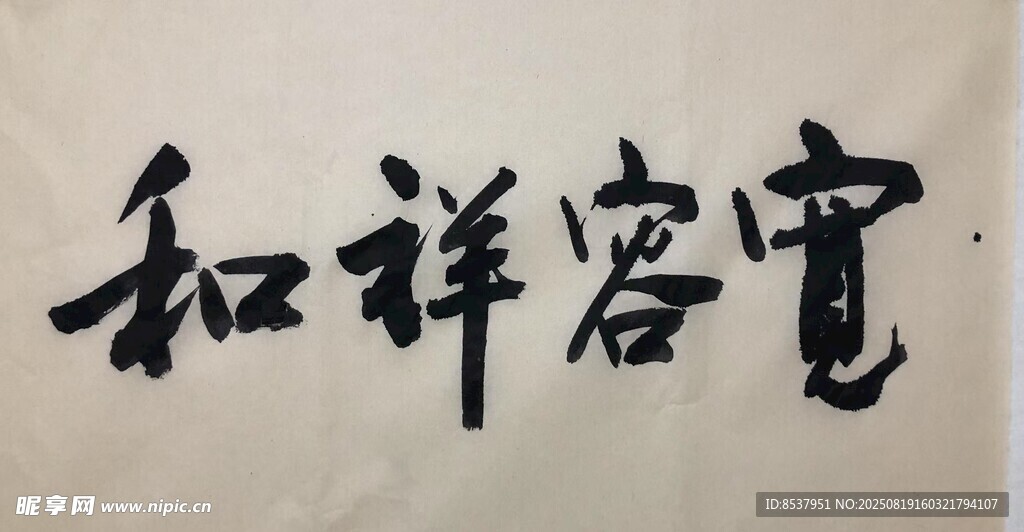 宽容祥和
昵享网 www.nipic.cn
ID:8537951 NO:20250819160321794107